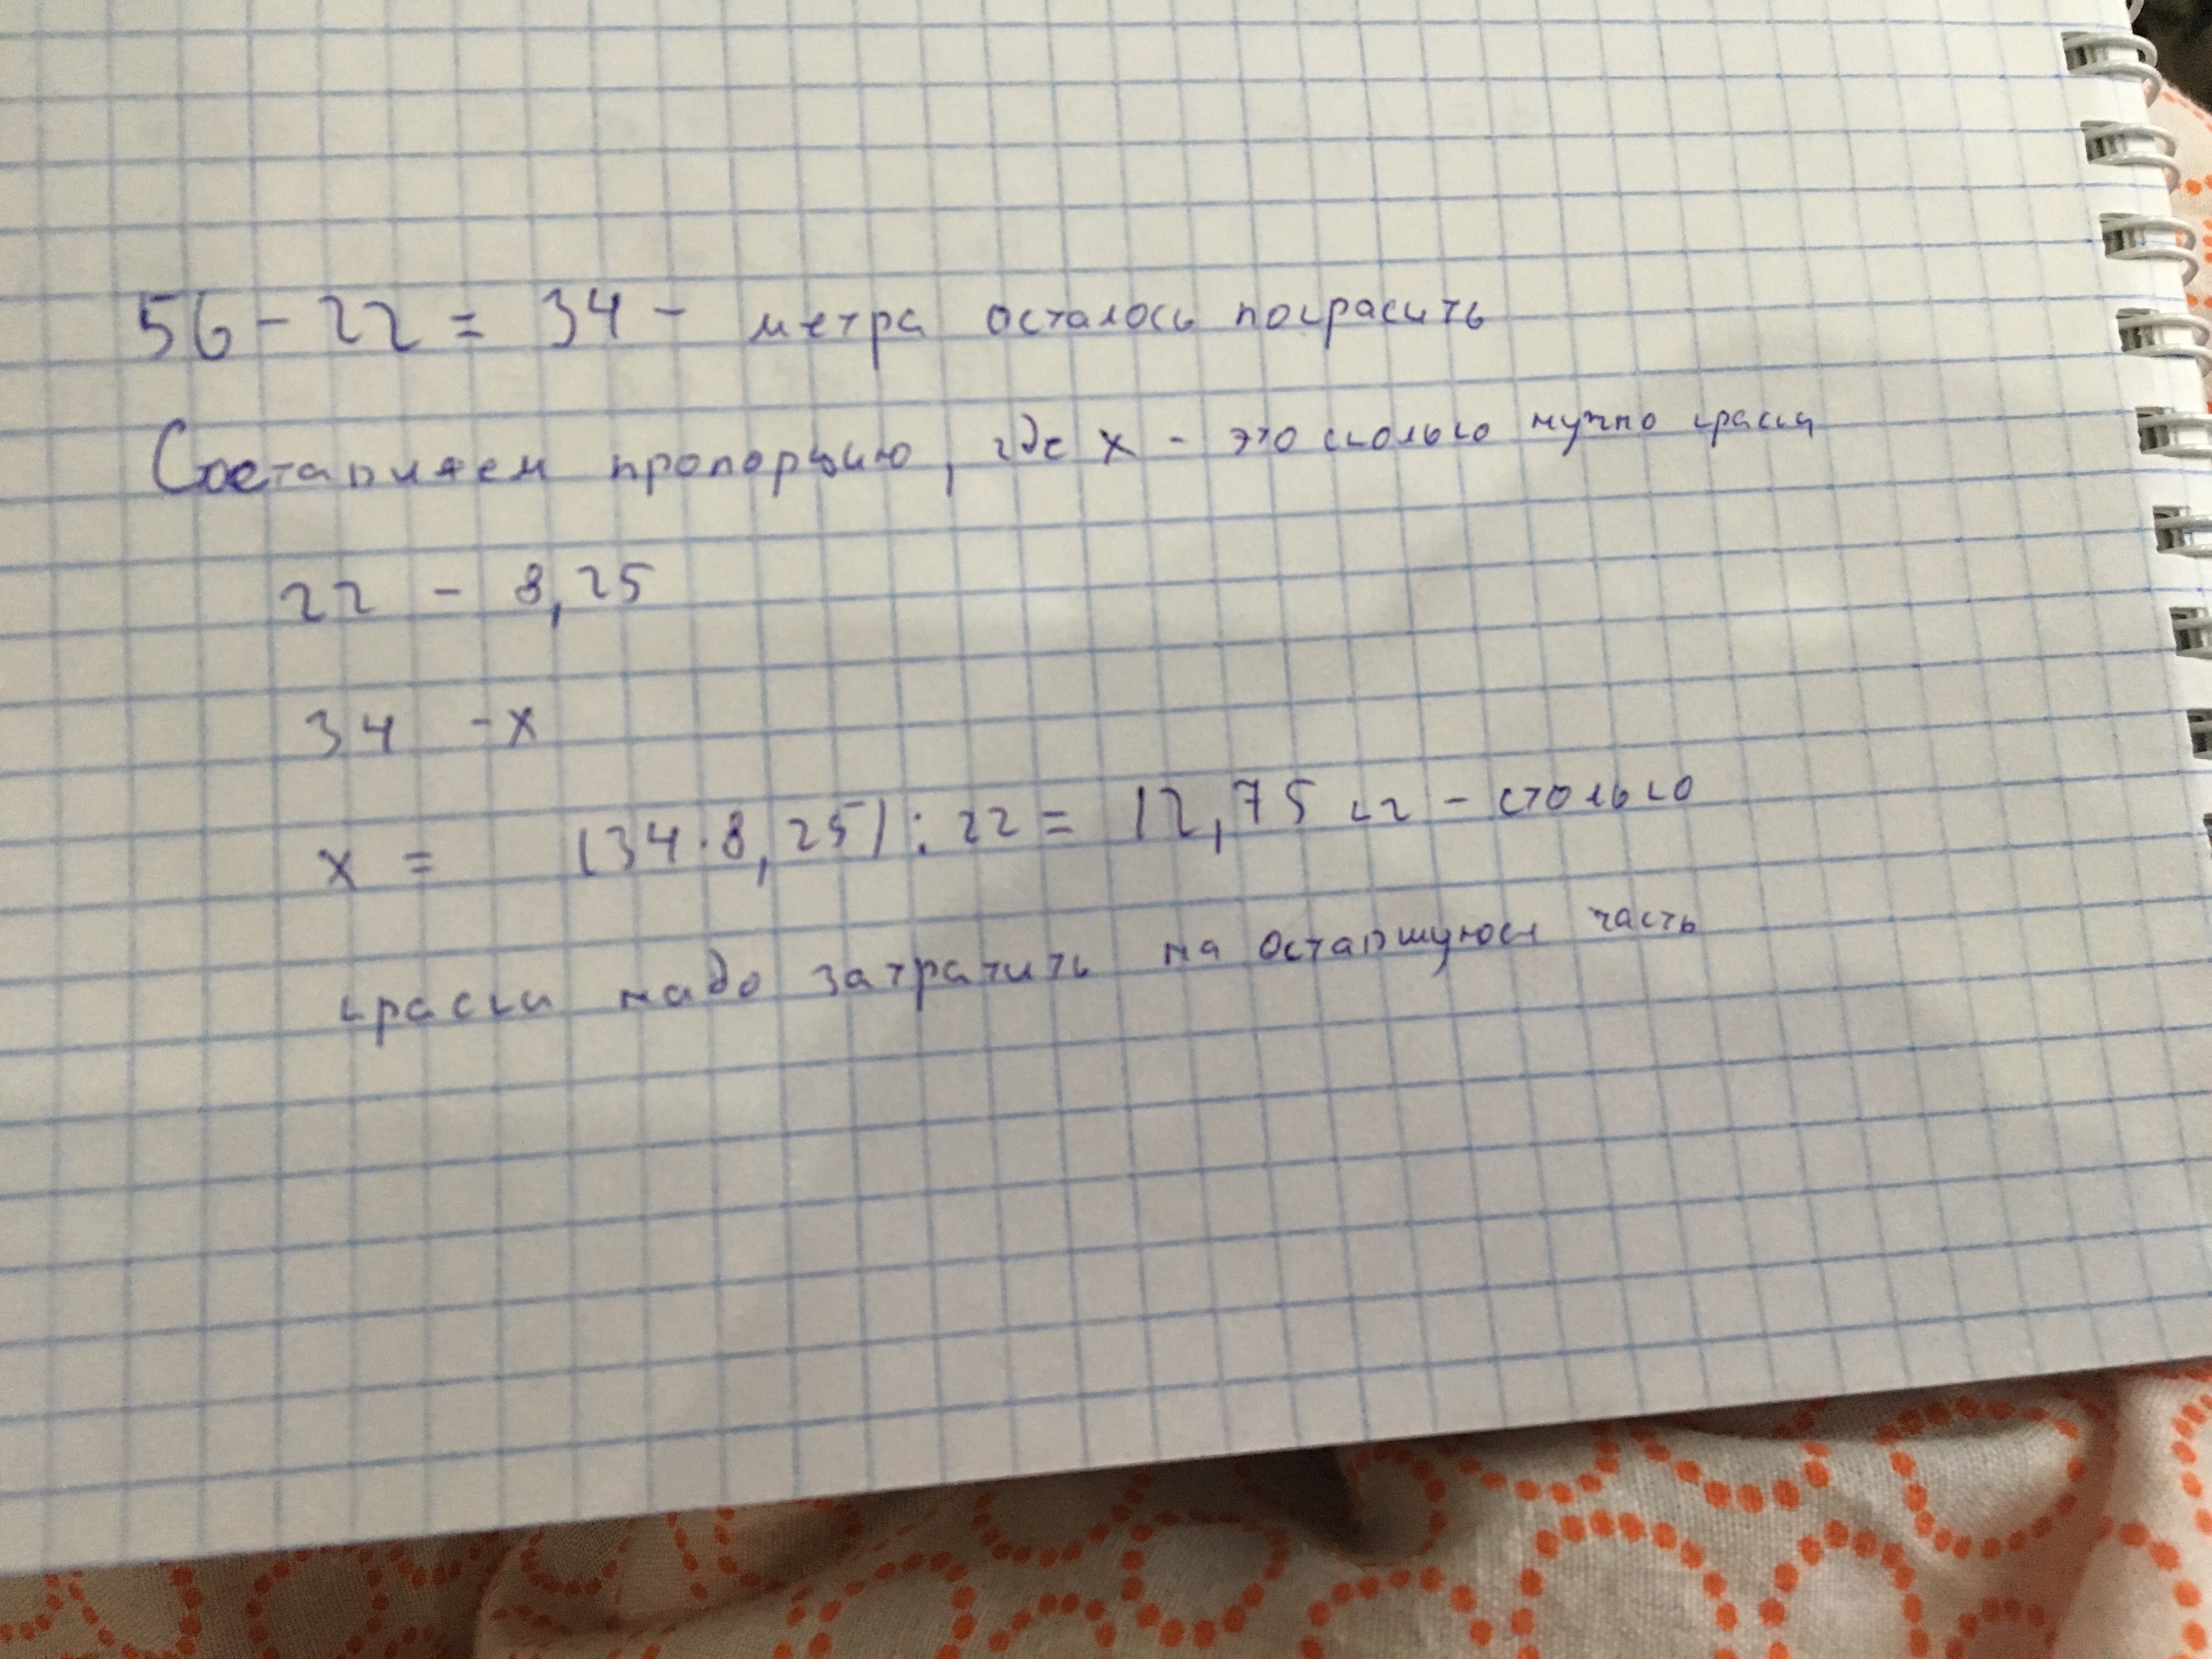 56 - 22 = 34 - метра осталось покрасить
Составляем пропорцию, где х - это сколько нужно краски
22 - 8,25
34 - х
х = (34 · 8,25) : 22 = 12,75 кг - столько
краски надо затратить на оставшуюся часть